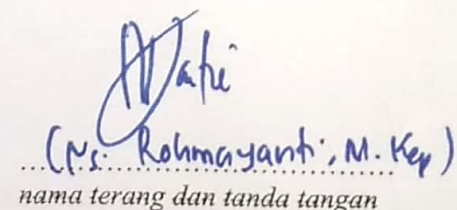 (Ns. Rohmayanti, M. Kep)
nama terang dan tanda tangan